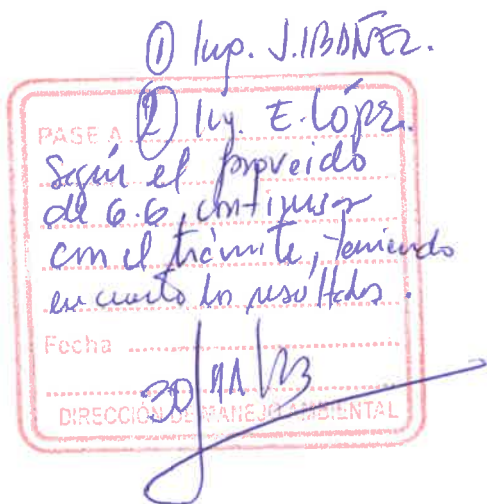 ① Ing. J. IBAÑEZ.
PASE A ② Ing. E. López.
Según el proveido
de G.G, continuar
con el trámite, teniendo
en cuenta los resultados.
Fecha
30/11/23
DIRECCIÓN DE MANEJO AMBIENTAL